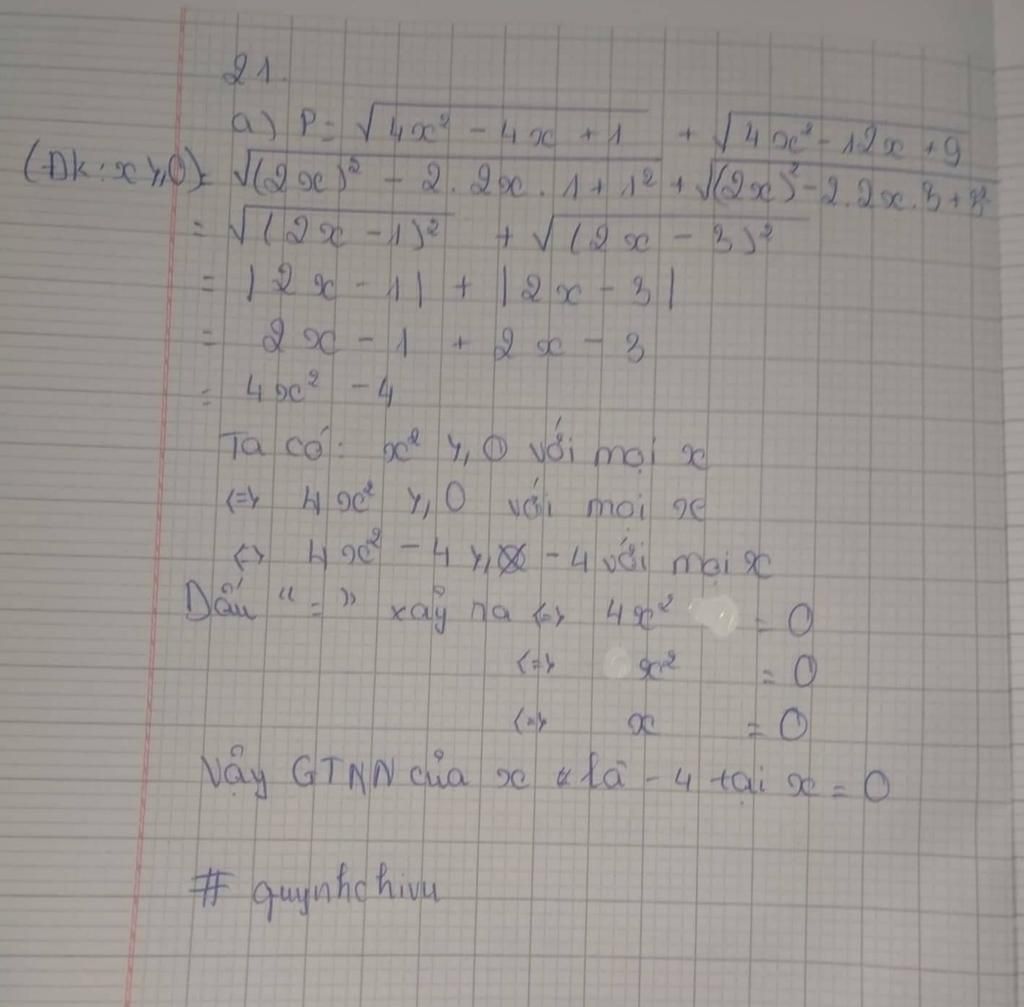 21.
a) P = √(4x² - 4x + 1) + √(4x² - 12x + 9)
(ĐK: x ≥ 0) = √((2x)² - 2.2x.1 + 1²) + √((2x)² - 2.2x.3 + 3²)
= √((2x - 1)²) + √((2x - 3)²)
= |2x - 1| + |2x - 3|
= 2x - 1 + 2x - 3
= 4x² - 4
Ta có: x² ≥ 0 với mọi x
<=> 4x² ≥ 0 với mọi x
<=> 4x² - 4 ≥ - 4 với mọi x
Dấu "=" xảy ra <=> 4x² = 0
<=> x² = 0
<=> x = 0
Vậy GTNN của x là - 4 tại x = 0
# quynhchivu